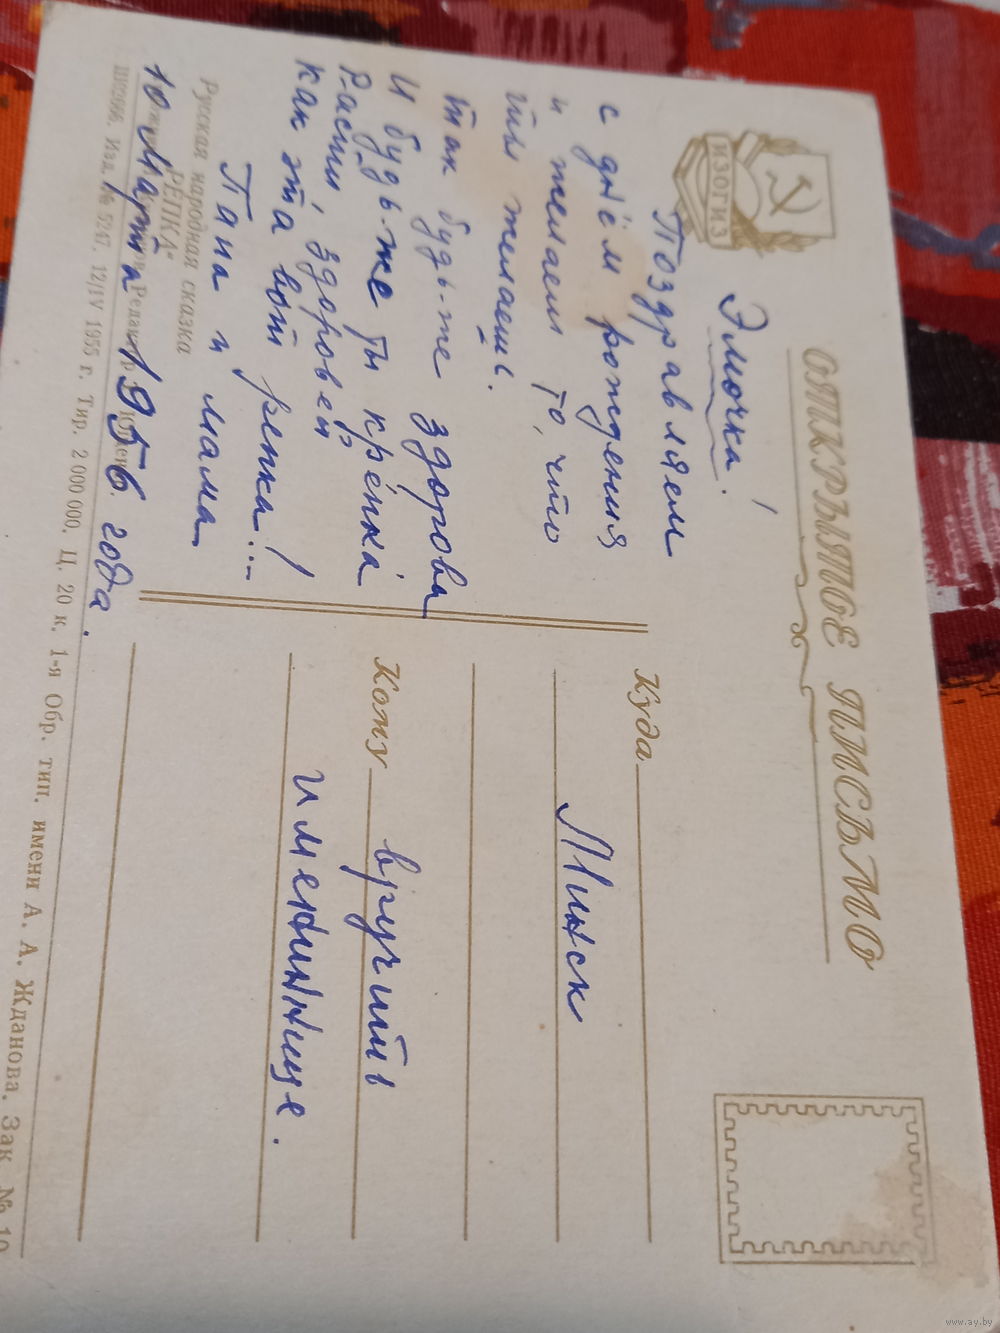 ИЗОГИЗ
ОТКРЫТОЕ ПИСЬМО
Элючка!
Поздравляем
с днём рождения
и желаем то, что
ты желаеш.
так будь-же здорова
И будь-же ты крепка
Расти, здоровей
как эта вот репка...!
Папа и мама
10 Марта 1956 года.
Русская народная сказка
"РЕПКА"
Изд. № 5247. 12/IV 1955 г. Тир. 2 000 000. Ц. 20 к. 1-я Обр. тип. имени А. А. Жданова. Зак. № 10
Куда
Минск
Кому вручить
именинице.
www.ay.by